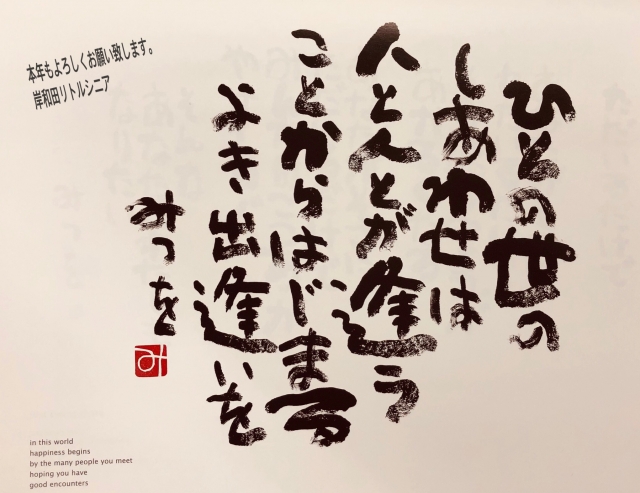 本年もよろしくお願い致します。
岸和田リトルシニア
ひとの世の
しあわせは
人と人とが逢う
ことからはじまる
よき出逢いを
みつを
み
in this world
happiness begins
by the many people you meet
hoping you have
good encounters